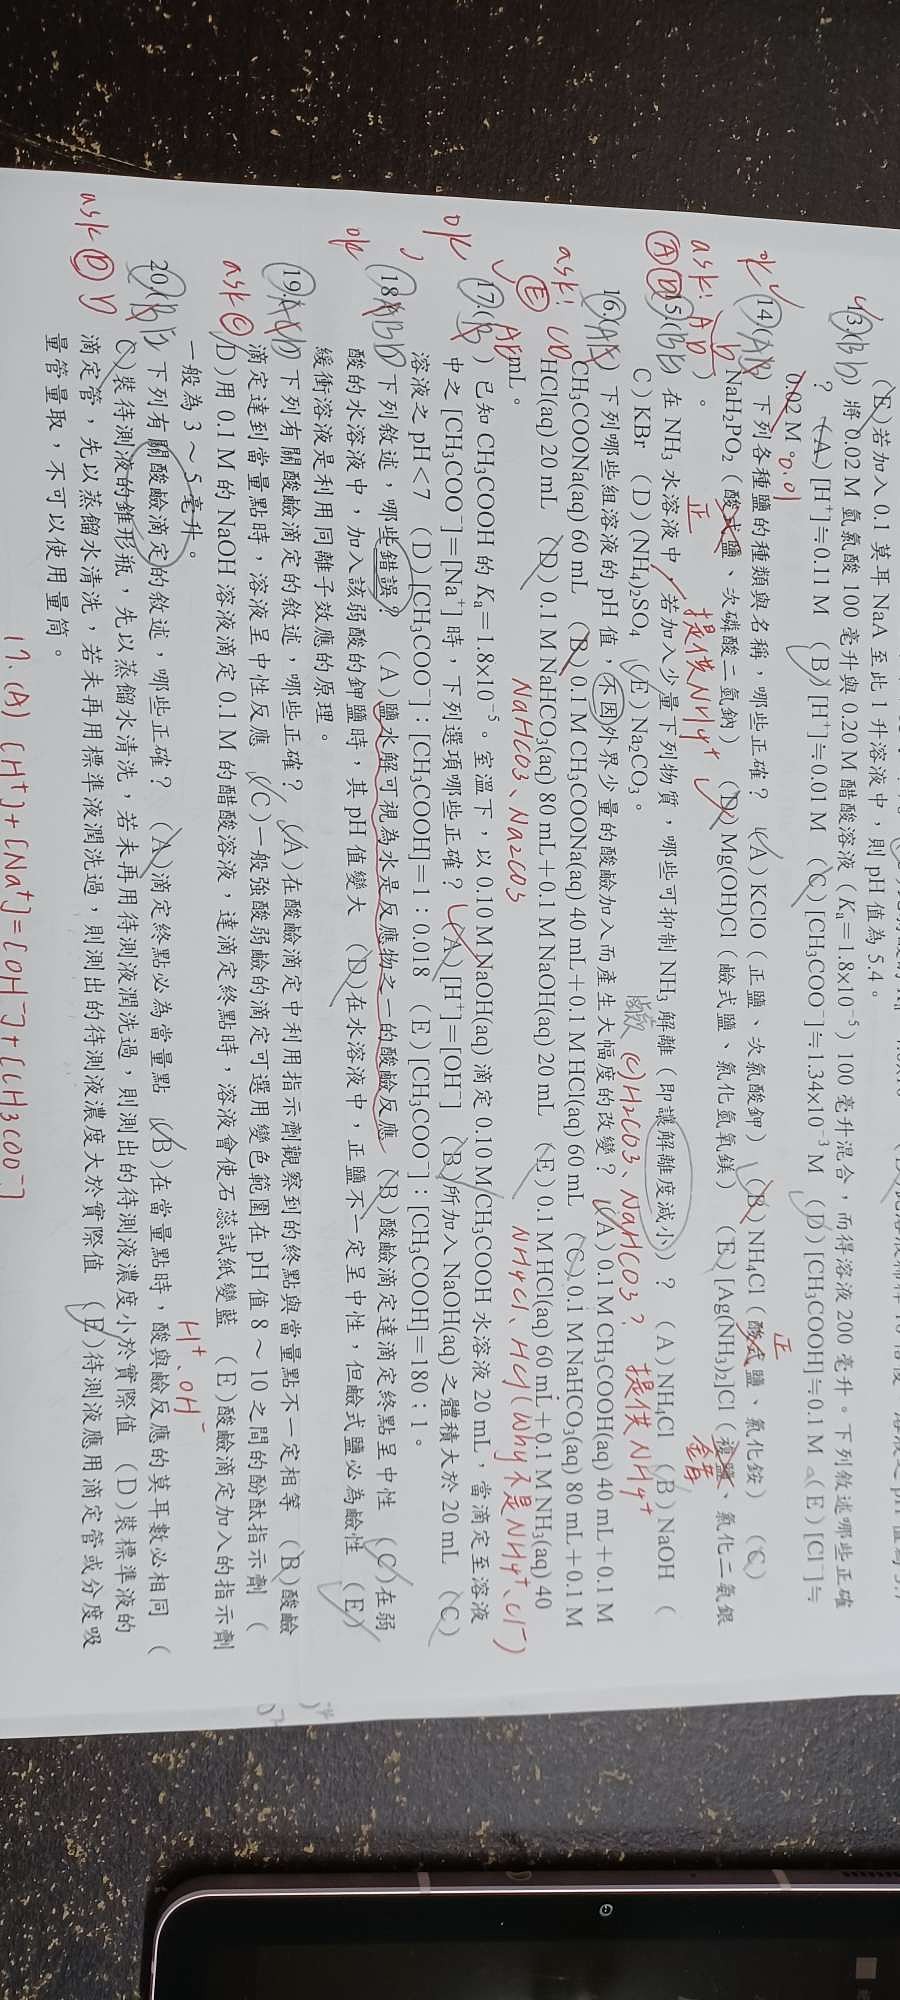 (E)若加入 0.1 莫耳 NaA 至此 1 升溶液中，則 pH 值為 5.4。
13.(B) 將 0.02 M 氫氯酸 100 毫升與 0.20 M 醋酸溶液（Ka＝1.8×10⁻⁵）100 毫升混合，而得溶液 200 毫升。下列敘述哪些正確
？ (A) [H⁺]≒0.11 M (B) [H⁺]≒0.01 M (C) [CH₃COO⁻]≒1.34×10⁻³ M (D) [CH₃COOH]≒0.1 M (E) [Cl⁻]≒
0.02 M。 0.01
ok 14. 下列各種鹽的種類與名稱，哪些正確？ (A) KClO（正鹽、次氯酸鉀） (B) NH₄Cl（酸式鹽、氯化銨） (C)
正
NaH₂PO₂（酸式鹽、次磷酸二氫鈉） (D) Mg(OH)Cl（鹼式鹽、氯化氫氧鎂） (E) [Ag(NH₃)₂]Cl（複鹽、氯化二氨銀
）。 正 提供NH₄⁺ 錯
ask! AD
15. 在 NH₃ 水溶液中，若加入少量下列物質，哪些可抑制 NH₃ 解離（即讓解離度減小）？ (A) NH₄Cl (B) NaOH (
C) KBr (D) (NH₄)₂SO₄ (E) Na₂CO₃。
(C)H₂CO₃、NaHCO₃? 提供NH₄⁺
16. 下列哪些組溶液的 pH 值，不因外界少量的酸鹼加入而產生大幅度的改變？ (A) 0.1 M CH₃COOH(aq) 40 mL＋0.1 M
CH₃COONa(aq) 60 mL (B) 0.1 M CH₃COONa(aq) 40 mL＋0.1 M HCl(aq) 60 mL (C) 0.1 M NaHCO₃(aq) 80 mL＋0.1 M
ask! CD
HCl(aq) 20 mL (D) 0.1 M NaHCO₃(aq) 80 mL＋0.1 M NaOH(aq) 20 mL (E) 0.1 M HCl(aq) 60 mL＋0.1 M NH₃(aq) 40
Ⓔ mL。 NaHCO₃、Na₂CO₃ NH₄Cl、HCl(Why 不是NH₄⁺、Cl⁻)
17. 已知 CH₃COOH 的 Ka＝1.8×10⁻⁵。室溫下，以 0.10 M NaOH(aq) 滴定 0.10 M CH₃COOH 水溶液 20 mL，當滴定至溶液
中之 [CH₃COO⁻]＝[Na⁺] 時，下列選項哪些正確？ (A) [H⁺]＝[OH⁻] (B)所加入 NaOH(aq) 之體積大於 20 mL (C)
ok 溶液之 pH＜7 (D) [CH₃COO⁻]：[CH₃COOH]＝1：0.018 (E) [CH₃COO⁻]：[CH₃COOH]＝180：1。
18. 下列敘述，哪些錯誤？ (A)鹽水解可視為水是反應物之一的酸鹼反應 (B)酸鹼滴定達滴定終點呈中性 (C)在弱
ok 酸的水溶液中，加入該弱酸的鉀鹽時，其 pH 值變大 (D)在水溶液中，正鹽不一定呈中性，但鹼式鹽必為鹼性 (E)
緩衝溶液是利用同離子效應的原理。
19. 下列有關酸鹼滴定的敘述，哪些正確？ (A)在酸鹼滴定中利用指示劑觀察到的終點與當量點不一定相等 (B)酸鹼
滴定達到當量點時，溶液呈中性反應 (C)一般強酸弱鹼的滴定可選用變色範圍在 pH 值 8～10 之間的酚酞指示劑 (
ask Ⓒ D)用 0.1 M 的 NaOH 溶液滴定 0.1 M 的醋酸溶液，達滴定終點時，溶液會使石蕊試紙變藍 (E)酸鹼滴定加入的指示劑
一般為 3～5 毫升。
H⁺、OH⁻
20. 下列有關酸鹼滴定的敘述，哪些正確？ (A)滴定終點必為當量點 (B)在當量點時，酸與鹼反應的莫耳數必相同 (
C)裝待測液的錐形瓶，先以蒸餾水清洗，若未再用待測液潤洗過，則測出的待測液濃度小於實際值 (D)裝標準液的
滴定管，先以蒸餾水清洗，若未再用標準液潤洗過，則測出的待測液濃度大於實際值 (E)待測液應用滴定管或分度吸
ask Ⓓ 量管量取，不可以使用量筒。
17. (A) [H⁺]+[Na⁺]=[OH⁻]+[CH₃COO⁻]